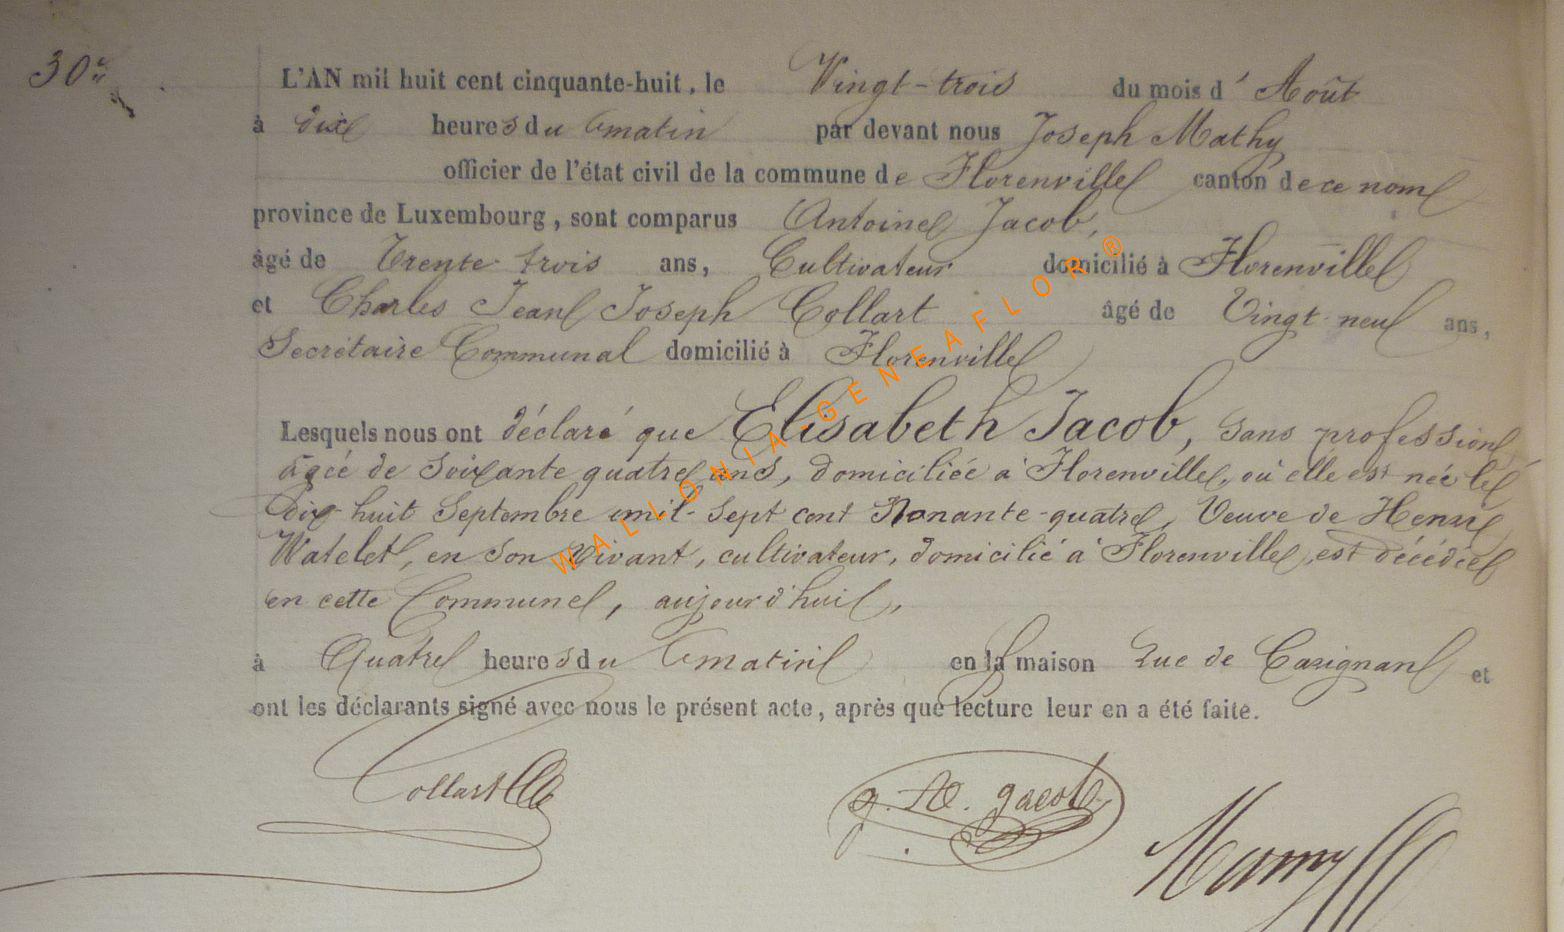 30e
L'AN mil huit cent cinquante-huit, le Vingt-trois du mois d' Août
à dix heures du matin par devant nous Joseph Mathy
officier de l'état civil de la commune de Florenville canton de ce nom
province de Luxembourg, sont comparus Antoine Jacob,
âgé de Trente-trois ans, Cultivateur domicilié à Florenville
et Charles Jean Joseph Collart âgé de Vingt-neuf ans,
Secrétaire Communal domicilié à Florenville
Lesquels nous ont déclaré que Elisabeth Jacob, sans profession
âgée de soixante quatre ans, domiciliée à Florenville, où elle est née le
dix-huit Septembre mil-sept cent Nonante-quatre, Veuve de Henri
Watelet, en son vivant, cultivateur, domicilié à Florenville, est décédée
en cette Commune, aujourd'hui,
à Quatre heures du matin en la maison Rue de Carignan et
ont les déclarants signé avec nous le présent acte, après que lecture leur en a été faite.
Collart
Jacob
WALLONIA-GENEAFLOR®